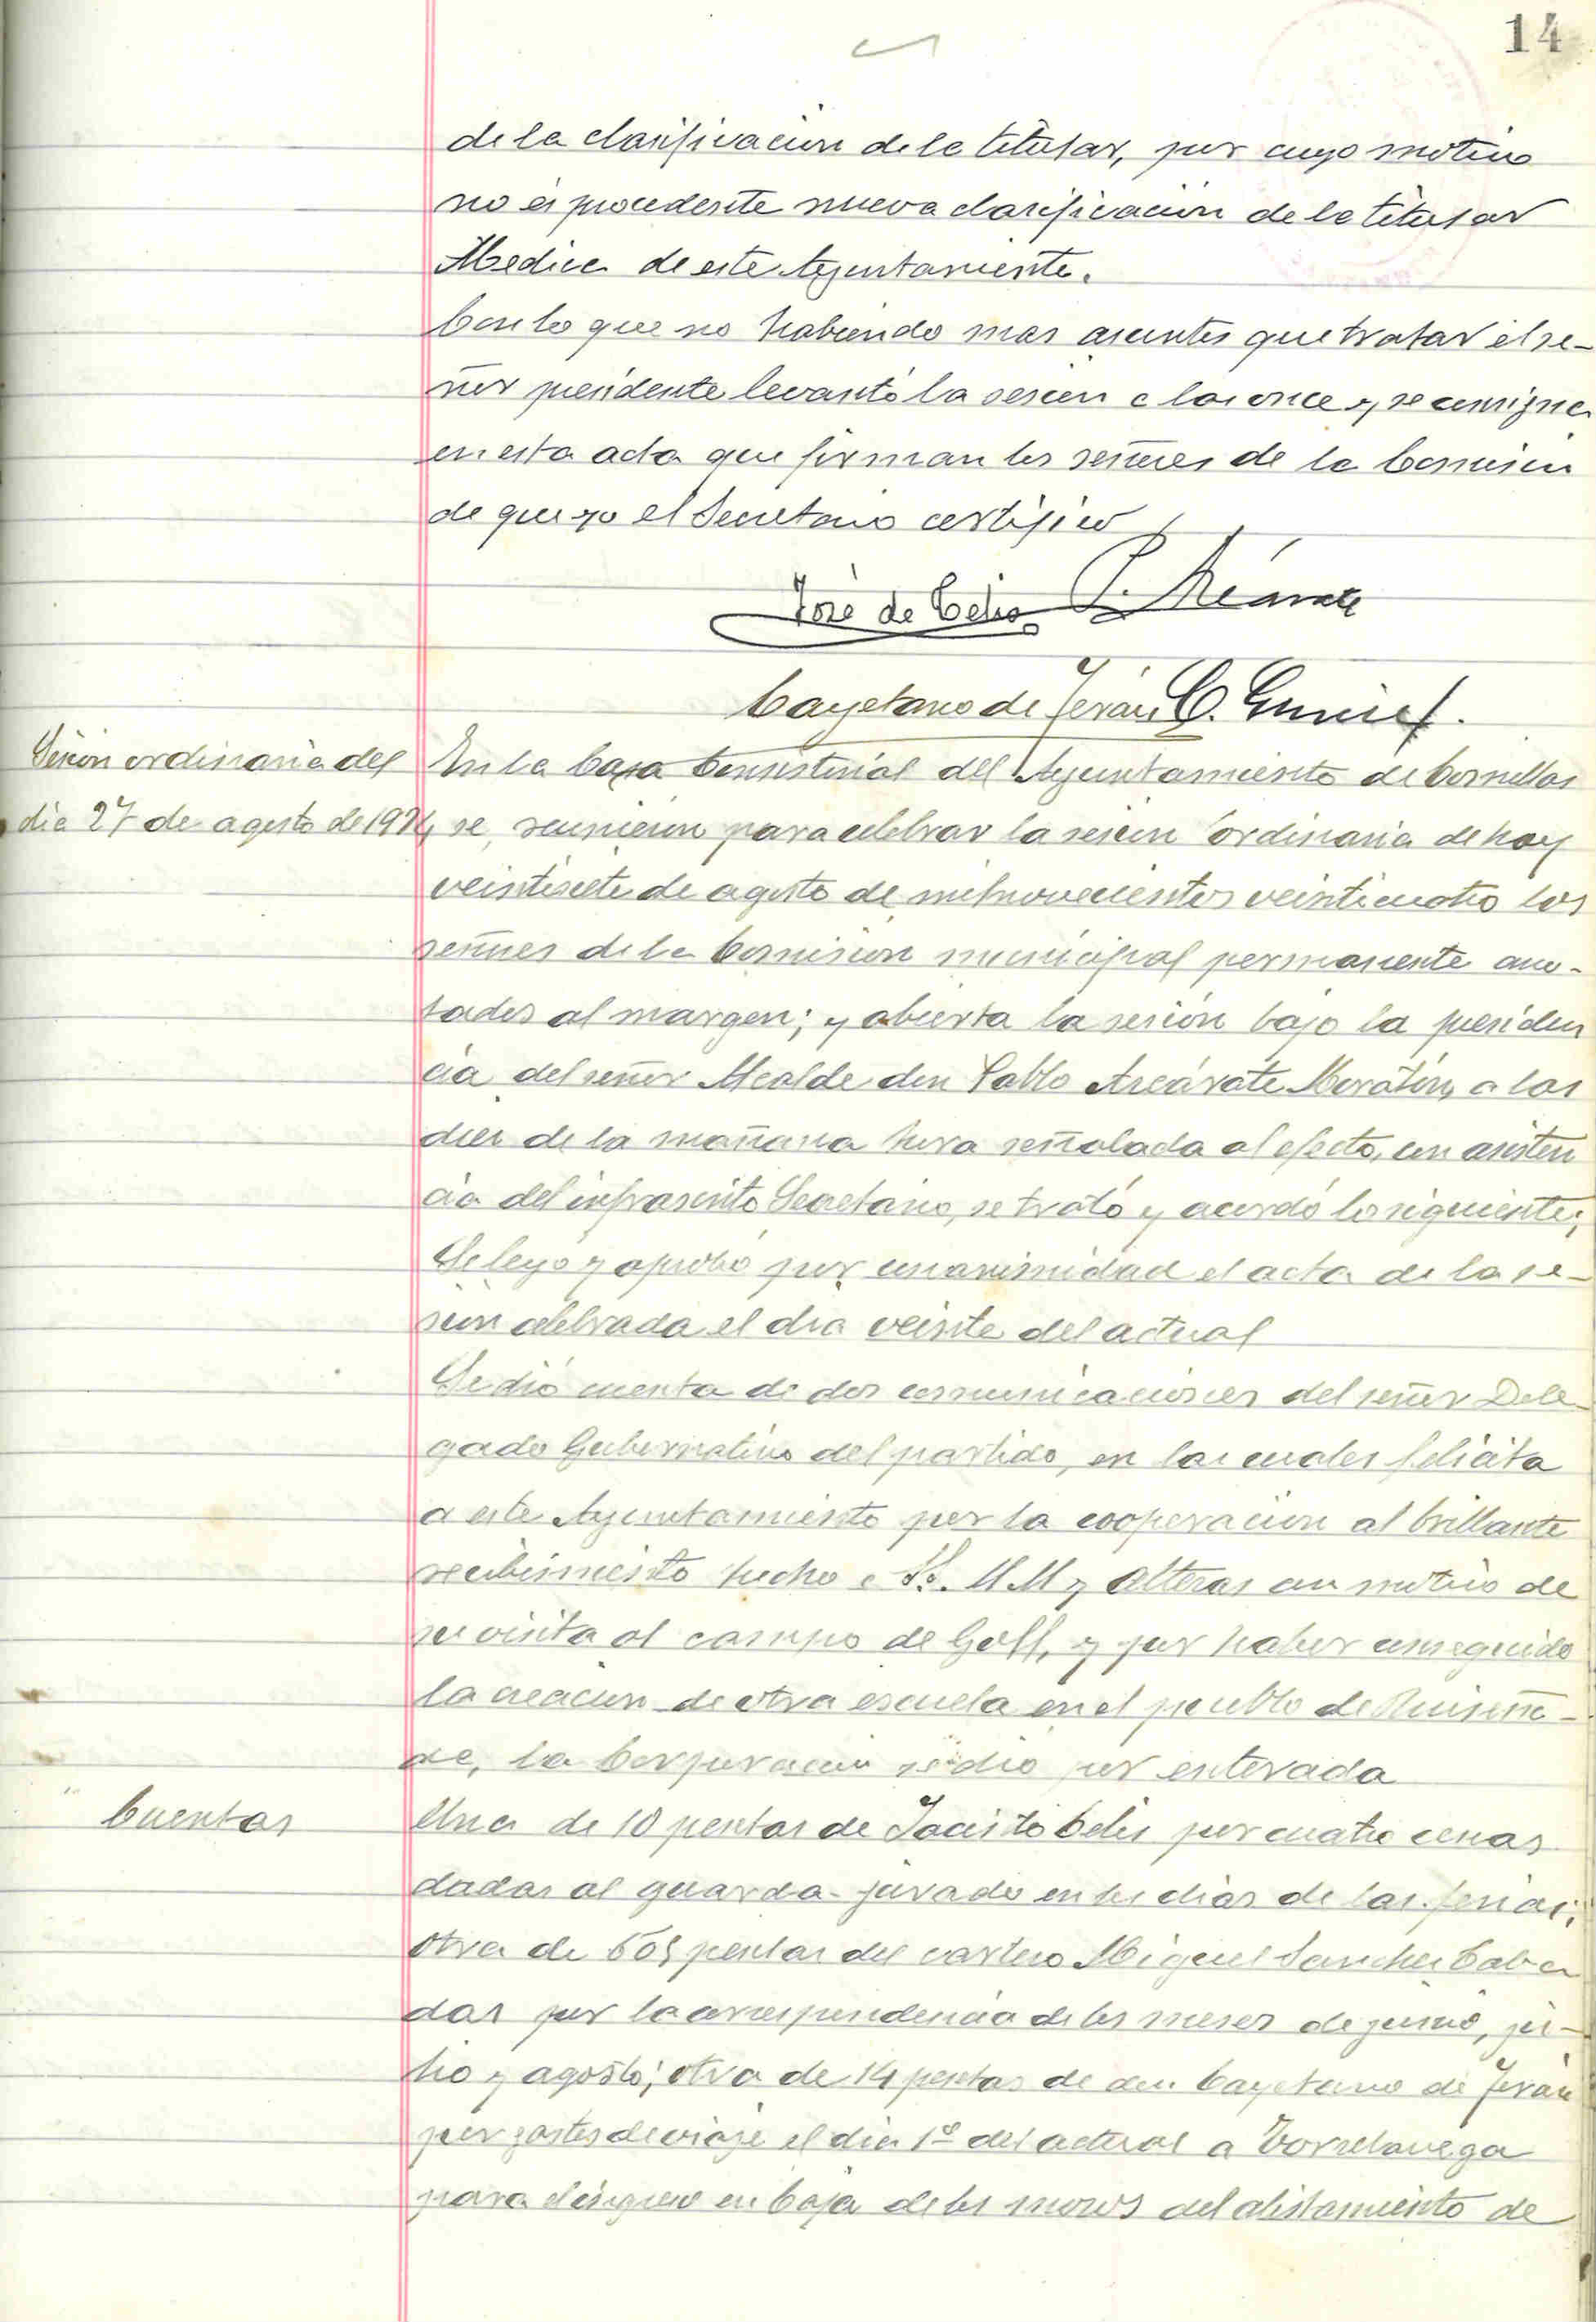 14
de la clasificación de la titular, por cuyo motivo
no es procedente nueva clasificación de la titular
Medica de este Ayuntamiento.
Con lo que no habiendo mas asuntos que tratar el se-
ñor presidente levantó la sesion a las once y se consigna
en esta acta que firman los señores de la Comision
de que yo el Secretario certifico
José de Celis P. Azcárate
Cayetano de Terán C.
Sesión ordinaria del
dia 27 de agosto de 1924
En la Casa Consistorial del Ayuntamiento de Comillas
se reunieron para celebrar la sesion ordinaria de hoy
veintisiete de agosto de mil novecientos veinticuatro los
señores de la Comision municipal permanente ano-
tados al margen; y abierta la sesión bajo la presiden
cia del señor Alcalde don Pablo Azcárate Moratin, a las
diez de la mañana hora señalada al efecto, con asisten
cia del infrascrito Secretario, se trató y acordó lo siguiente;
Se leyó y aprobó por unanimidad el acta de la se-
sion celebrada el dia veinte del actual
Se dió cuenta de dos comunicaciones del señor Dele-
gado Gubernativo del partido, en las cuales felicita
a este Ayuntamiento por la cooperacion al brillante
recibimiento hecho a SS. MM y Altezas con motivo de
su visita al campo de Golf, y por haber conseguido
la creacion de otra escuela en el pueblo de Ruiseña-
da, la Corporacion se dio por enterada
Cuentas
Una de 10 pesetas de Jacinto Celis por cuatro cenas
dadas al guarda-jurado en los dias de las ferias;
otra de pesetas del cartero Miguel Sanchez Caba
das por la correspondencia de los meses de junio, ju-
lio y agosto; otra de 14 pesetas de don Cayetano de Terán
por gastos de viaje el dia 1º del actual a Torrelavega
para el ingreso en Caja de los mozos del alistamiento de